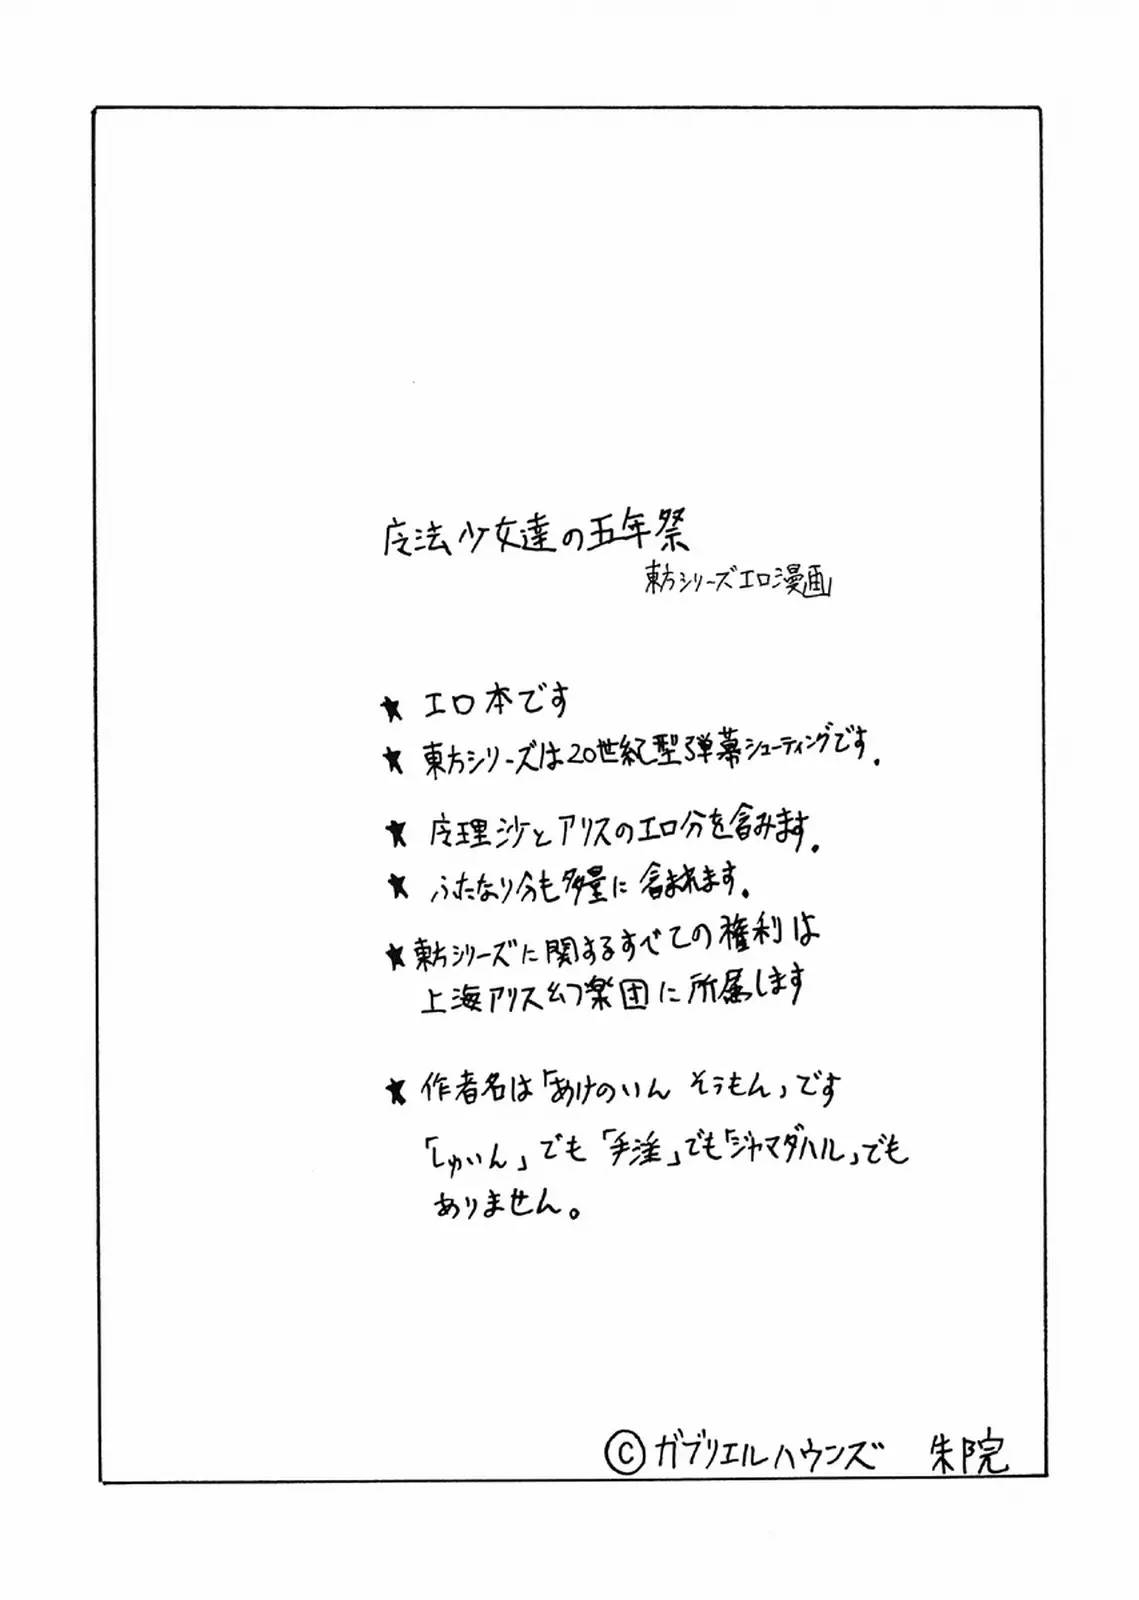 魔法少女達の五年祭
東方シリーズエロ漫画
★ エロ本です
★ 東方シリーズは20世紀型弾幕シューティングです。
★ 魔理沙とアリスのエロ分を含みます。
★ ふたなり分も多量に含まれます。
★東方シリーズに関するすべての権利は
上海アリス幻楽団に所属します
★ 作者名は「あけのいん そうもん」です
「しゅいん」でも「手淫」でも「ジャマダハル」でも
ありません。
©ガブリエルハウンズ 朱院